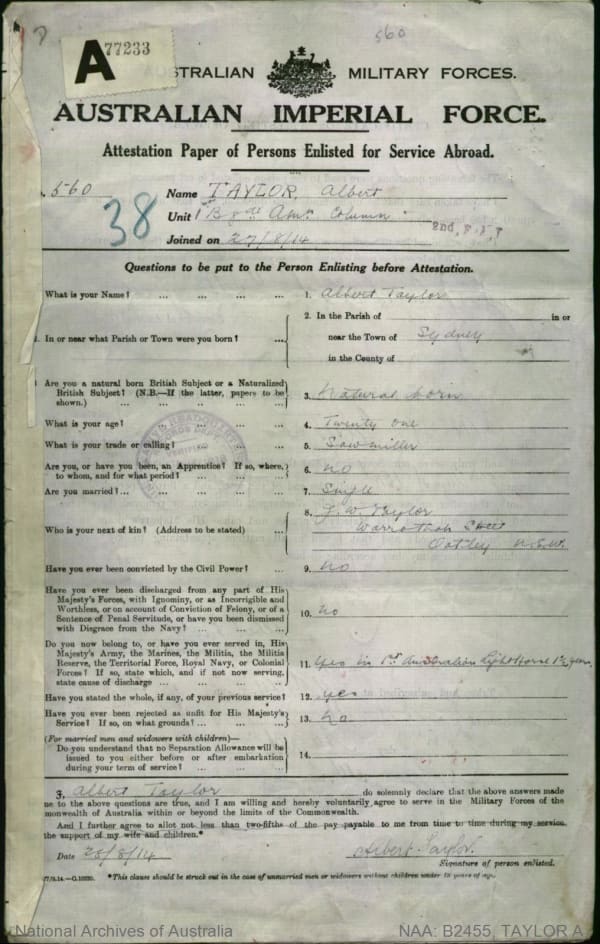 560
A 77233
AUSTRALIAN MILITARY FORCES.
AUSTRALIAN IMPERIAL FORCE.
Attestation Paper of Persons Enlisted for Service Abroad.
560 Name TAYLOR, Albert
38 Unit 1st Bgde Amn Column
Joined on 27/8/14
Questions to be put to the Person Enlisting before Attestation.
What is your Name? ... ... ... ... 1. Albert Taylor
2. In the Parish of in or
1. In or near what Parish or Town were you born? ... near the Town of Sydney
in the County of
Are you a natural born British Subject or a Naturalized
British Subject? (N.B.—If the latter, papers to be
shown.) ... ... ... ... 3. Natural born
What is your age? ... ... ... ... 4. Twenty one
What is your trade or calling? ... ... ... 5. Sawmiller
Are you, or have you been, an Apprentice? If so, where,
to whom, and for what period? ... ... ... 6. no
Are you married? ... ... ... ... 7. Single
8. J. W. Taylor
Who is your next of kin? (Address to be stated) ... Warrotah Street
Oatley N.S.W.
Have you ever been convicted by the Civil Power? ... 9. no
Have you ever been discharged from any part of His
Majesty's Forces, with Ignominy, or as Incorrigible and
Worthless, or on account of Conviction of Felony, or of a
Sentence of Penal Servitude, or have you been dismissed
with Disgrace from the Navy? ... ... ... 10. no
Do you now belong to, or have you ever served in, His
Majesty's Army, the Marines, the Militia, the Militia
Reserve, the Territorial Force, Royal Navy, or Colonial
Forces? If so, state which, and if not now serving,
state cause of discharge ... ... ... 11. Yes in 1st Australian Light Horse 1½ years
Have you stated the whole, if any, of your previous service? 12. yes
Have you ever been rejected as unfit for His Majesty's
Service? If so, on what grounds? ... ... ... 13. no
(For married men and widowers with children)—
Do you understand that no Separation Allowance will be
issued to you either before or after embarkation
during your term of service? ... ... ... 14.
I, Albert Taylor do solemnly declare that the above answers made
me to the above questions are true, and I am willing and hereby voluntarily agree to serve in the Military Forces of the
monwealth of Australia within or beyond the limits of the Commonwealth.
And I further agree to allot not less than two-fifths of the pay payable to me from time to time during my service
the support of my wife and children.*
Date 28/8/14 Albert Taylor.
Signature of person enlisted.
*This clause should be struck out in the case of unmarried men or widowers without children under 18 years of age.
National Archives of Australia NAA: B2455, TAYLOR A